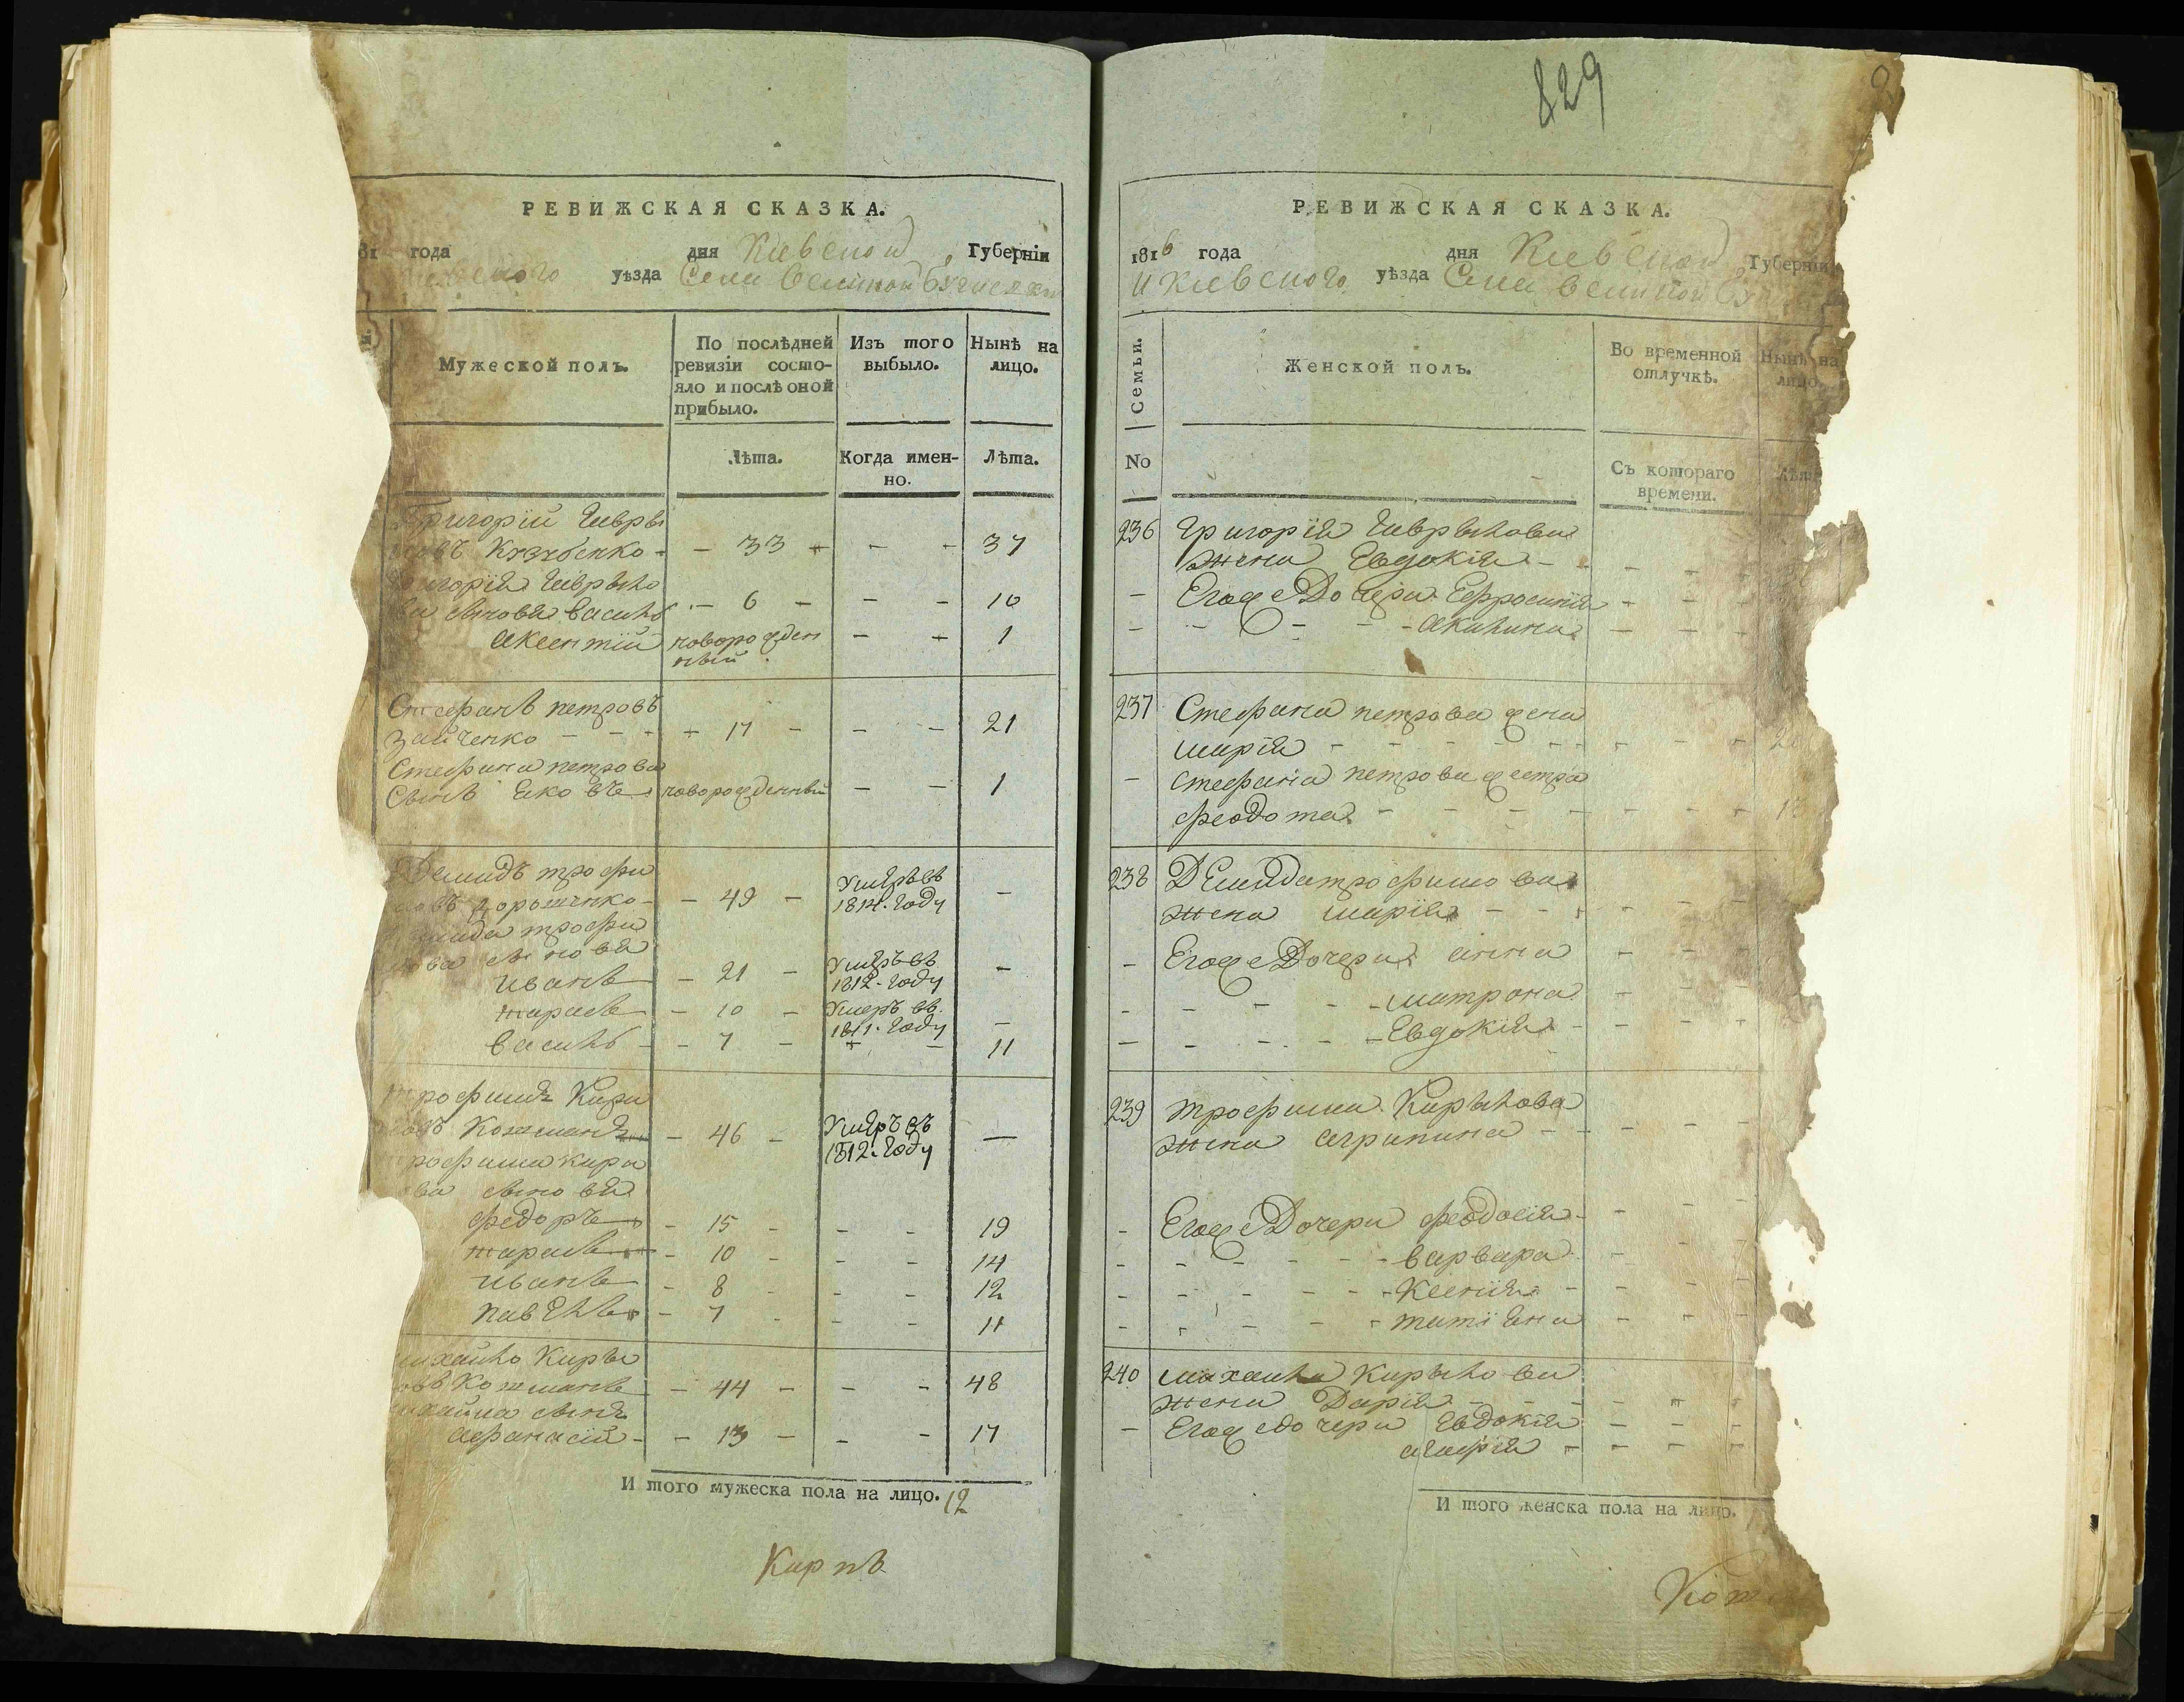 РЕВИЖСКАЯ СКАЗКА.
181 года дня Киевской Губерніи
уѣзда Села Великой
Мужеской полъ.
По послѣдней ревизіи состо-
яло и послѣ оной
прибыло.
Изъ того
выбыло.
Нынѣ на
лицо.
Лѣта.
Когда имен-
но.
Лѣта.
Григорій Гаври
33 - - 37
Григорія Гаврило
ва сыновя Василь - 6 - - - 10
Аксентій новорожден
ный - - 1
Стефанъ петровъ
Зайченко - - - 17 - - - 21
Стефана петрова
Сынъ Яковъ новорожденный - - 1
Демидъ трофи
- 49 - умеръ въ
1814. году -
трофи
ва сыновя
иванъ - 21 - Умеръ въ
1812. году -
тарасъ - 10 - Умеръ въ
1811. году -
василь - 7 - - - 11
трофимъ Кири
Кошманъ - 46 - Умеръ въ
1812. году —
трофима кири
ва сыновя
федоръ - 15 - - - 19
тарасъ - 10 - - - 14
иванъ - 8 - - - 12
павелъ - 7 - - - 11
михайло Киры
Кошманъ - 44 - - - 48
михайла сынъ
афанасій - 13 - - - 17
И того мужеска пола на лицо. 12
829
РЕВИЖСКАЯ СКАЗКА.
1816 года дня Киевской Губерніи
И Киевского уѣзда Села великой
Семьи.
No
Женской полъ.
Во временной
отлучкѣ.
Нынѣ на
лицо.
Съ котораго
времени.
236 Григорія Гаврылова
Жена Евдокія - - - -
- Егож Дочери Ефросинія - - -
- - - - Акилина - - -
237 Стефана петрова жена
марія - - - - - -
- Стефана петрова сестра
феодота - - - - - -
238 Демида трофимова
жена марія - - - -
- Егож Дочери анна - -
- - - - матрона - -
- - - - Евдокія - - -
239 трофима Кирылова
жена агрипина - - - -
- Егож Дочери феодосія - -
- - - - варвара - -
- - - - Ксенія - -
- - - - татіяна - -
240 михайла Кирылова
жена Дарія - - - -
- Егож дочери Евдокія - - -
И того женска пола на лицо.